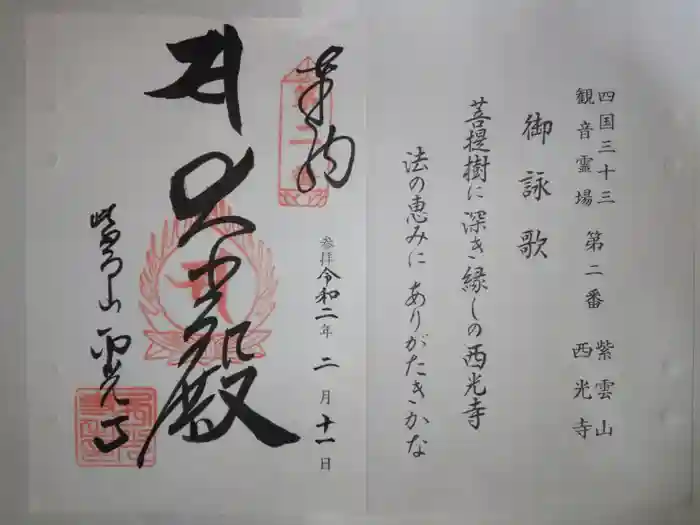 四国三十三
観音霊場 第二番 紫雲山
西光寺
御詠歌
菩提樹に 深き縁しの 西光寺
法の恵みに ありがたきかな
奉納
第二番
参拝 令和二年 二月 十一日
大悲殿
紫雲山 西光寺